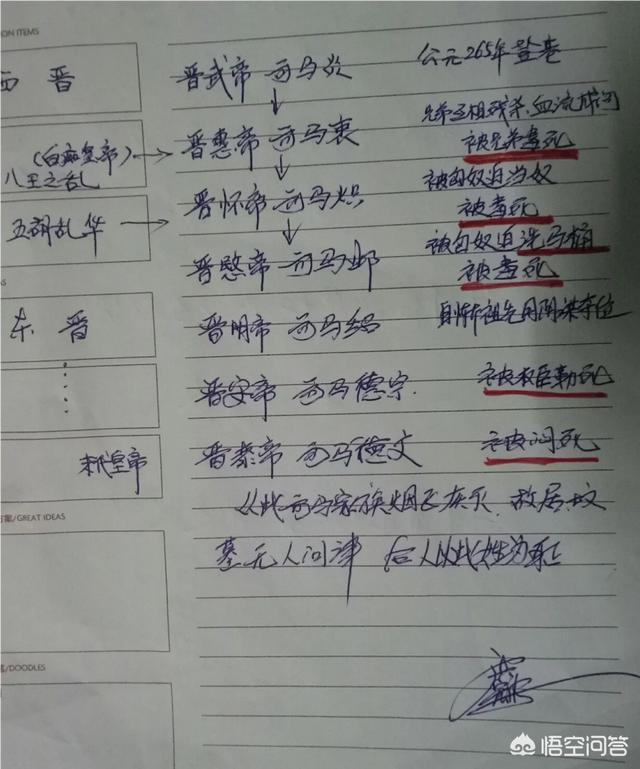 ION ITEMS
西晋
晋武帝 司马炎 公元265年登基
晋惠帝 司马衷 兄弟互相残杀,血流成河
(白痴皇帝) 被兄弟毒死
八王之乱
晋怀帝 司马炽 被匈奴迫当奴
五胡乱华 被毒死
晋愍帝 司马邺 被匈奴迫洗马桶
被毒死
东晋 晋明帝 司马绍 自惭祖先用阴谋夺位
晋安帝 司马德宗. 被权臣勒死
末代皇帝 晋恭帝 司马德文 被闷死
从此司马家族烟飞灰灭,故居 坟
/GREAT IDEAS
墓无人问津 后人以此姓为耻
/DOODLES
悟空问答